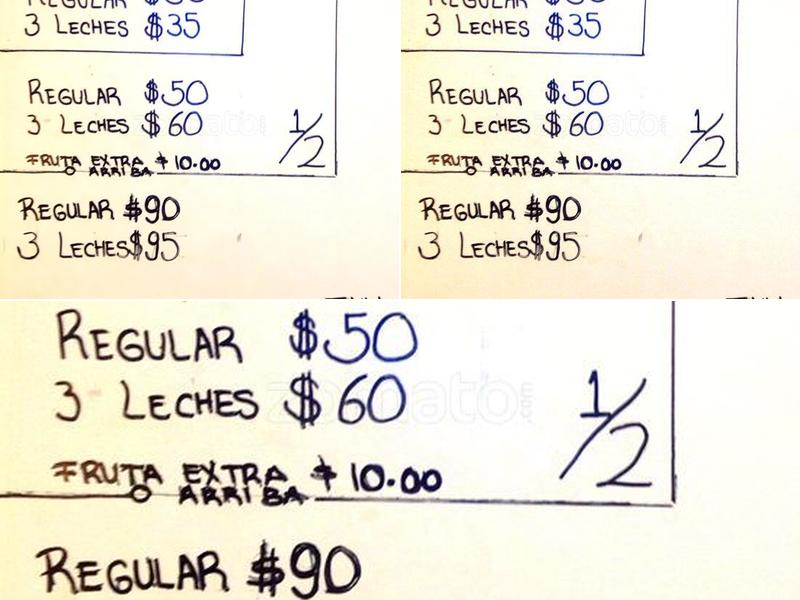 3 LECHES $35
REGULAR $50
3 LECHES $60
1/2
FRUTA EXTRA $10.00
ARRIBA
REGULAR $90
3 LECHES $95
3 LECHES $35
REGULAR $50
3 LECHES $60
1/2
FRUTA EXTRA $10.00
ARRIBA
REGULAR $90
3 LECHES $95
REGULAR $50
3 LECHES $60
zomato.com
1/2
FRUTA EXTRA $10.00
ARRIBA
REGULAR $90